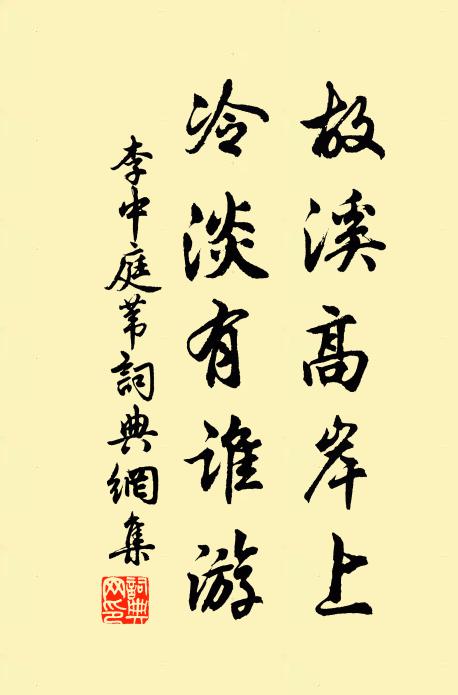 故溪高岸上
冷淡有谁游
李中庭苇詞典網集
詞典网印